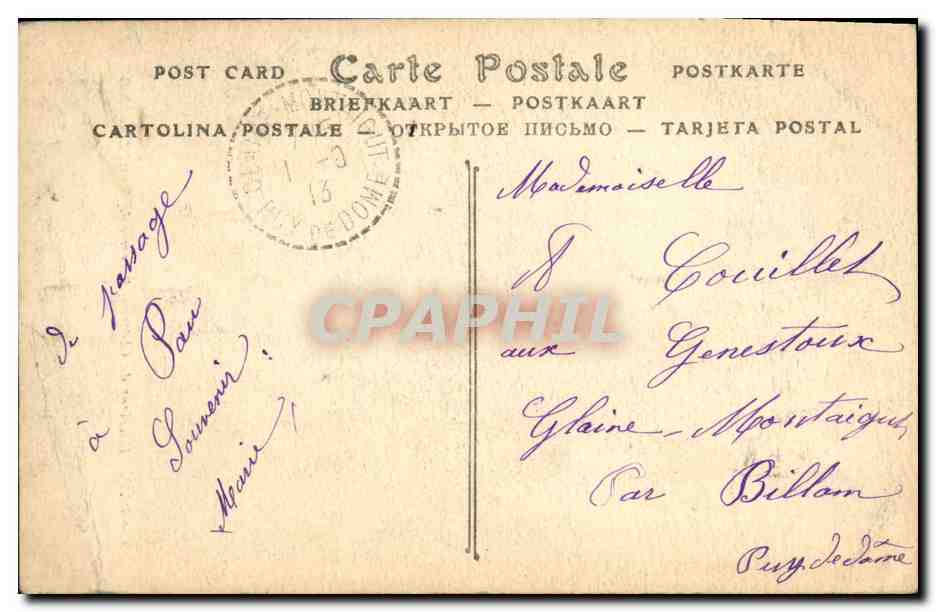 POST CARD Carte Postale POSTKARTE
BRIEFKAART — POSTKAART
CARTOLINA POSTALE — ОТКРЫТОЕ ПИСЬМО — TARJETA POSTAL
PUY DE DOME
13
de passage
à Pau
Souvenir !
Marie
Mademoiselle
Couillet
aux Genestoux
Glaine-Montaigut
Par Billom
Puy de dôme
CPAPHIL